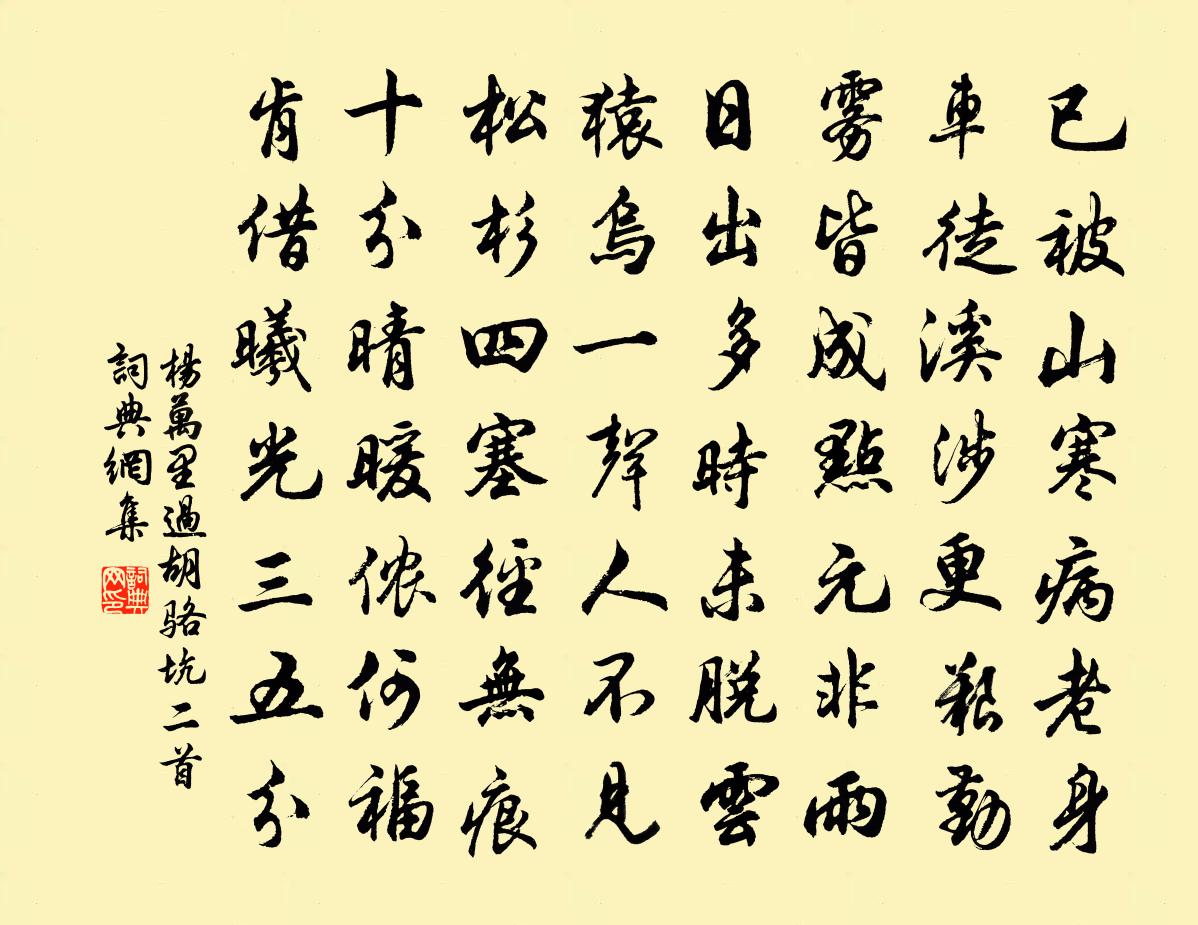 已被山寒病老身
車徒溪涉更艱勤
霧皆成點元非雨
日出多時未脫雲
猿鳥一聲人不見
松杉四塞徑無痕
十分晴暖侬何福
肯借曦光三五分
楊萬里過胡骆坑二首
詞典網集
詞典网印